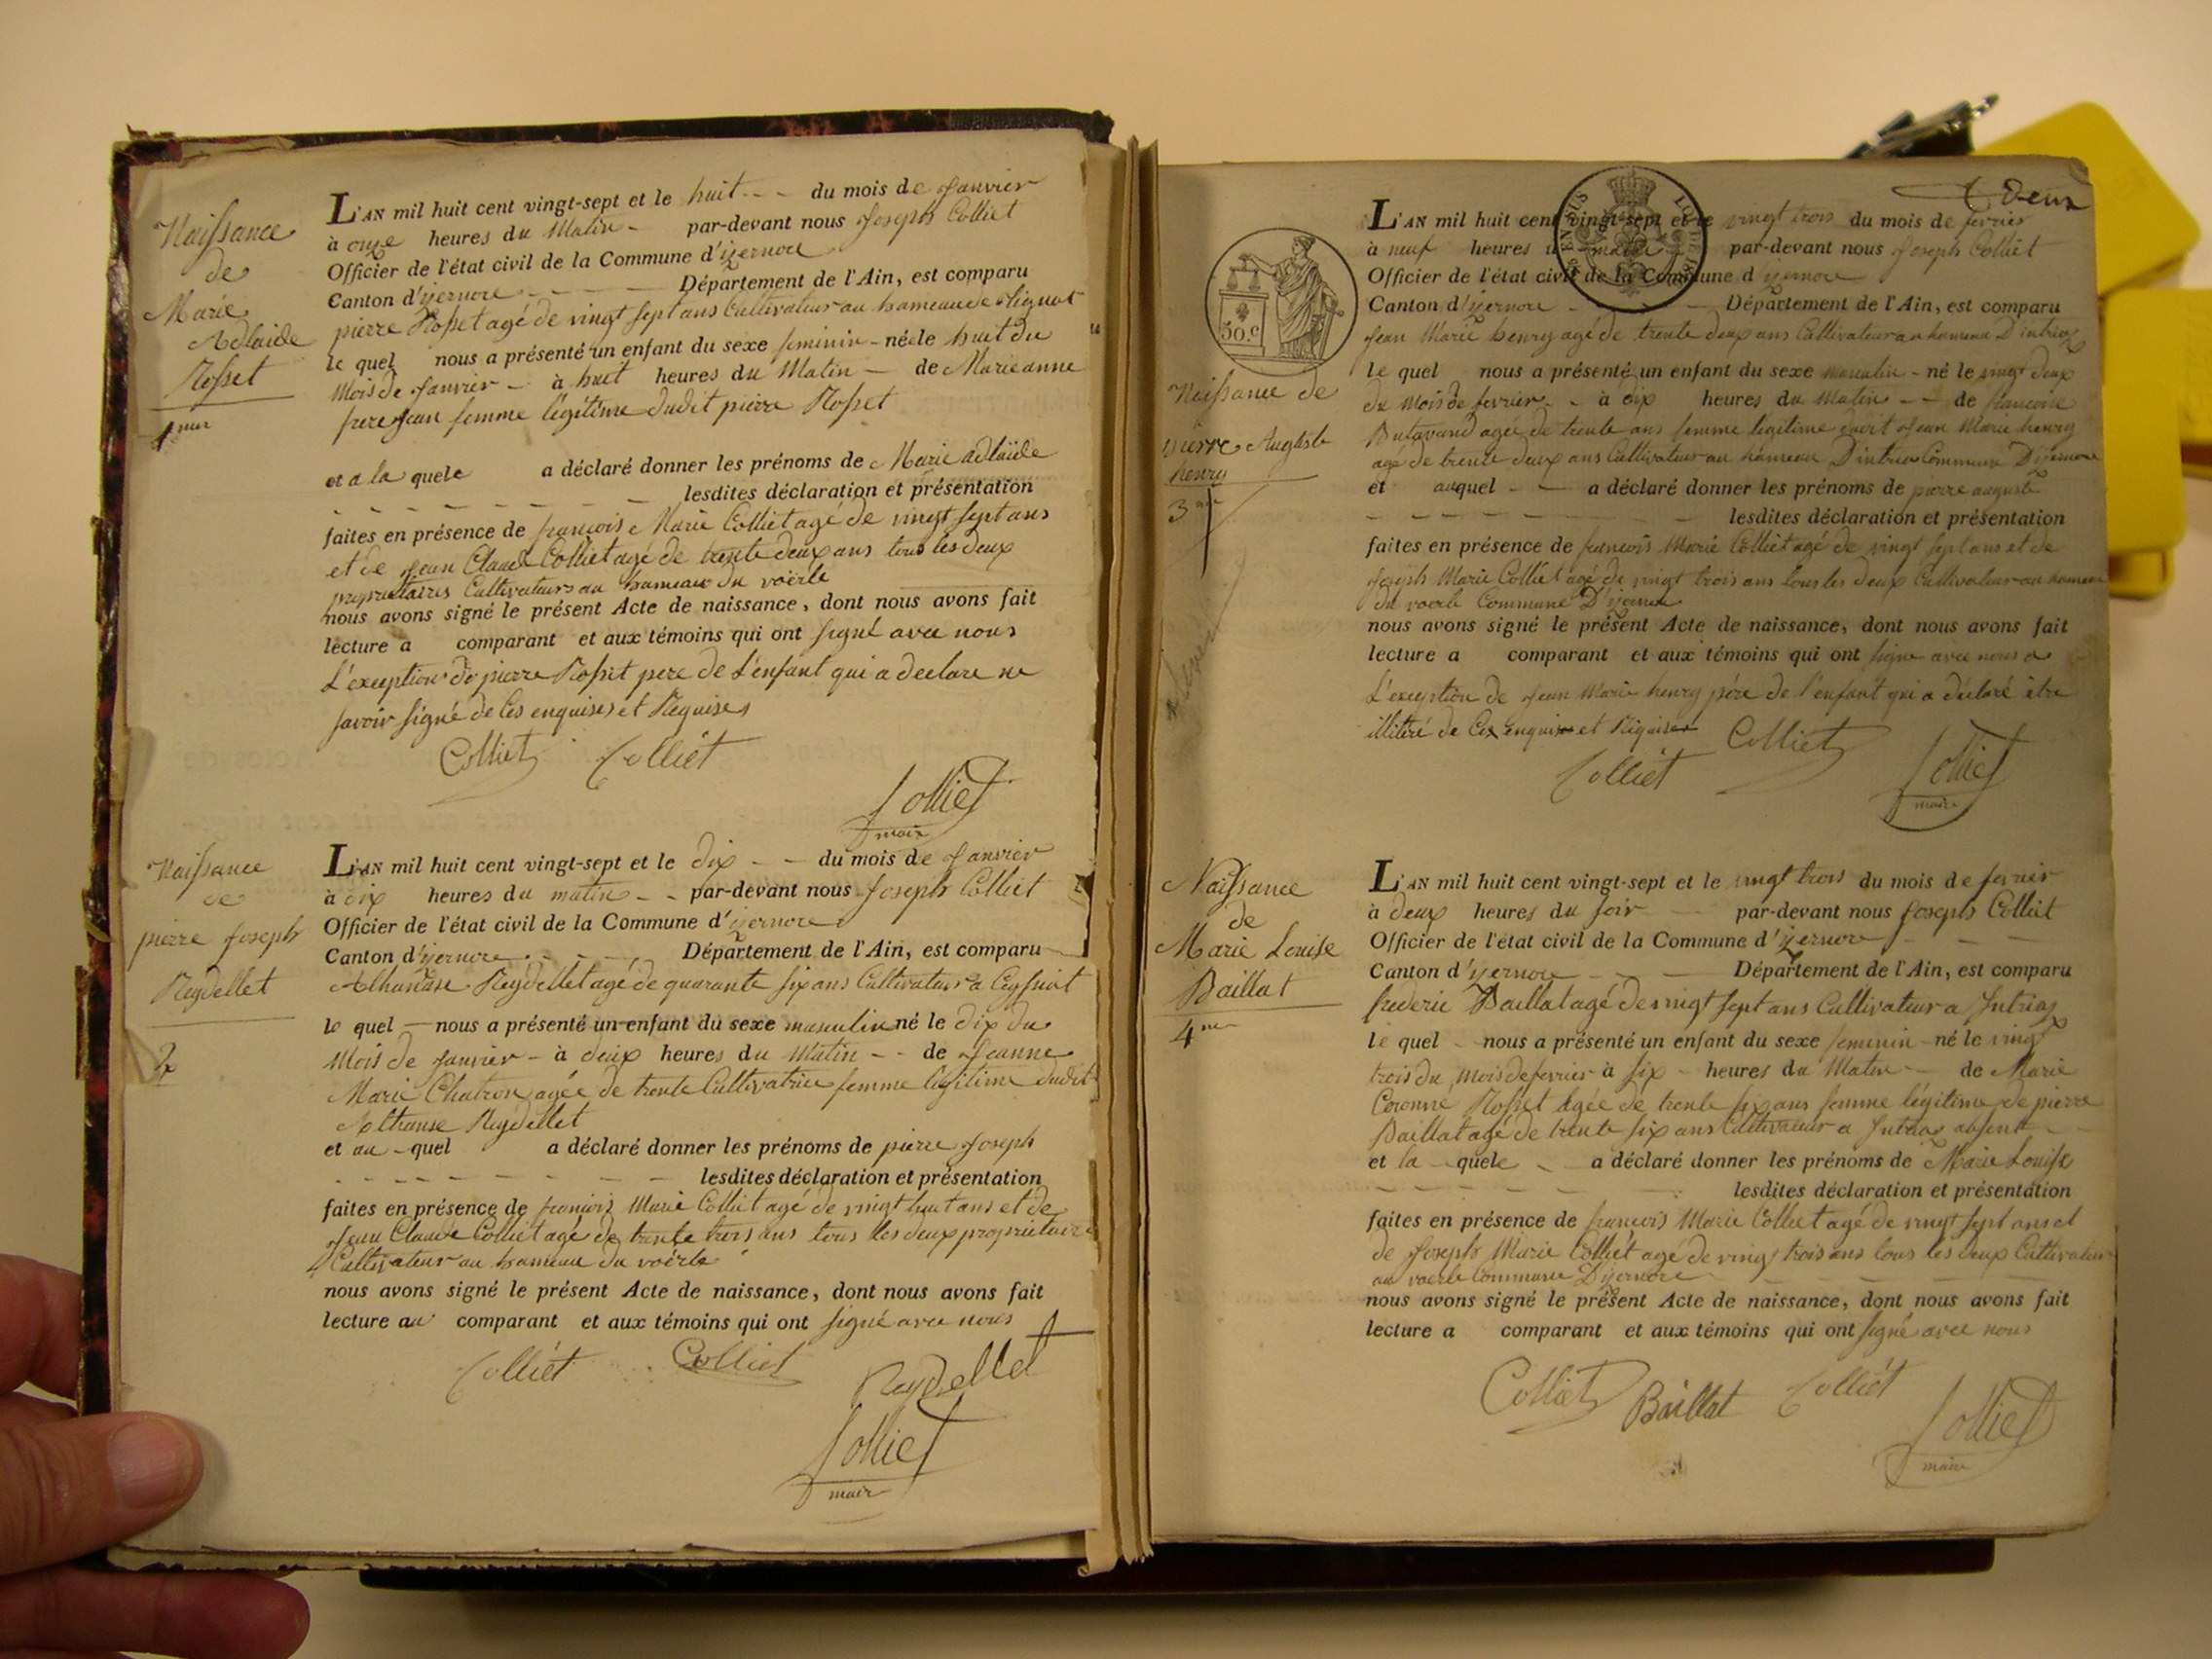 Naissance
de
Marie
Adlaide
Rosset
1
L'AN mil huit cent vingt-sept et le huit - - du mois de Janvier
à onze heures du Matin - par-devant nous Joseph Colliet
Officier de l'état civil de la Commune d'izernore
Canton d'izernore - - - Département de l'Ain, est comparu
pierre Rosset agé de vingt sept ans Cultivateur au hameau de
le quel nous a présenté un enfant du sexe feminin - née le huit du
Mois de Janvier - à huit heures du Matin - de Marie anne
frere Jean femme légitime dudit pierre Rosset
et a la quele a déclaré donner les prénoms de Marie adlaïde
- - - - - - lesdites déclaration et présentation
faites en présence de françois Marie Colliet agé de vingt sept ans
et de Jean Claude Colliet agé de trente deux ans tous les deux
propriétaires Cultivateurs au hameau du voërle
nous avons signé le présent Acte de naissance, dont nous avons fait
lecture a comparant et aux témoins qui ont signé avec nous
L'exception de pierre Rosset pere de L'enfant qui a declare ne
savoir signé de Ces enquises et Requises
Colliet Colliet
Colliet
maire
Naissance
de
pierre Joseph
Reydellet
2
L'AN mil huit cent vingt-sept et le dix - - du mois de Janvier
à dix heures du matin - - par-devant nous Joseph Colliet
Officier de l'état civil de la Commune d'izernore
Canton d'izernore - - - Département de l'Ain, est comparu
Reydellet agé de quarante six ans Cultivateur a Ceyssiat
le quel - nous a présenté un enfant du sexe masculin né le dix du
Mois de Janvier - à deux heures du Matin - - de Jeanne
Marie Chatron agée de trente Cultivatrice femme légitime dudit
Reydellet
et au - quel a déclaré donner les prénoms de pierre Joseph
- - - - - - lesdites déclaration et présentation
faites en présence de françois Marie Colliet agé de vingt huit ans et de
Jean Claude Colliet agé de trente trois ans tous les deux propriétaire
Cultivateur au hameau du voërle
nous avons signé le présent Acte de naissance, dont nous avons fait
lecture au comparant et aux témoins qui ont signé avec nous
Colliet Colliet Reydellet
Colliet
maire
deux
50 c
Naissance de
pierre Auguste
henry
3
L'AN mil huit cent vingt-sept et le vingt trois du mois de fevrier
à neuf heures du matin par-devant nous Joseph Colliet
Officier de l'état civil de la Commune d izernore
Canton d'izernore - - Département de l'Ain, est comparu
Jean Marie henry agé de trente deux ans Cultivateur au hameau D'intriaz
le quel nous a présenté un enfant du sexe masculin - né le vingt deux
du mois de fevrier - à dix heures du matin - - de francoise
Butavand agée de trente ans femme legitime dudit Jean Marie henry
agé de trente deux ans Cultivateur au hameau D'intriaz Commune D'izernore
et auquel - - a déclaré donner les prénoms de pierre auguste
- - - - - - lesdites déclaration et présentation
faites en présence de francois Marie Colliet agé de vingt sept ans et de
Joseph Marie Colliet agé de vingt trois ans tous les deux Cultivateur au hameau
du voerle Commune D'izernore
nous avons signé le présent Acte de naissance, dont nous avons fait
lecture a comparant et aux témoins qui ont signe avec nous a
L'exception de Jean Marie henry pére de l'enfant qui a déclaré être
illitéré de Ce enquis et Requise
Colliet
Colliet Colliet
maire
Naissance
de
Marie Louise
Baillat
4
L'AN mil huit cent vingt-sept et le vingt trois du mois de fevrier
à deux heures du soir par-devant nous Joseph Colliet
Officier de l'état civil de la Commune d'izernore - - -
Canton d'izernore - - - Département de l'Ain, est comparu
frederic Baillat agé de vingt sept ans Cultivateur a Intriaz
le quel - nous a présenté un enfant du sexe feminin - né le vingt
trois du mois de fevrier à six - heures du Matin - de Marie
Rosset agée de trente six ans femme légitime de pierre
Baillat agé de trente six ans Cultivateur a Intriaz absent - -
et la - quele - a déclaré donner les prénoms de Marie Louise
- - - - - - lesdites déclaration et présentation
faites en présence de francois Marie Colliet agé de vingt sept ans et
de Joseph Marie Colliet agé de vingt trois ans tous les deux Cultivateur
au voerle Commune D'izernore
nous avons signé le présent Acte de naissance, dont nous avons fait
lecture a comparant et aux témoins qui ont signé avec nous
Colliet Baillat Colliet
Colliet
maire